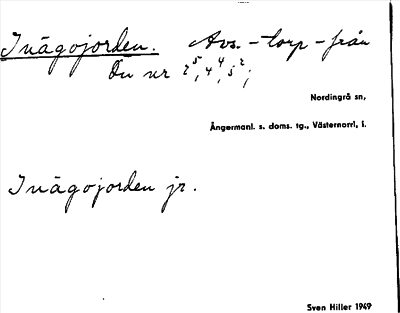 Inägojorden. Avs. - torp - från
Du nr 2⁵, 4⁴, 5²,
Nordingrå sn,
Ångermanl. s. doms. tg., Västernorrl. l.
Inägojorden jr.
Sven Hiller 1949